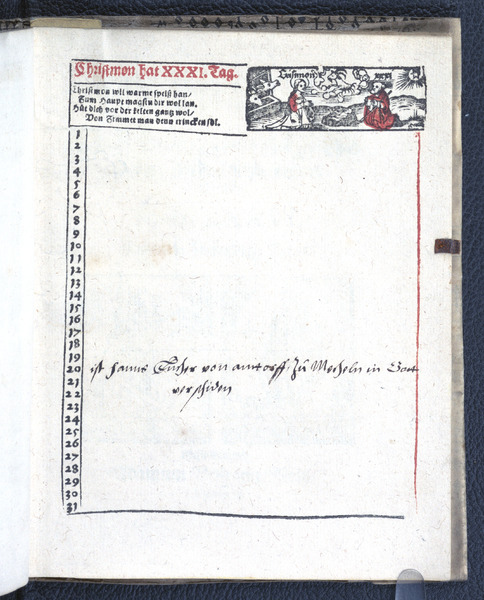 Christmon hat XXXI. Tag.
Christmon wil warme speiß han/
Zum Haupt magstu dir wol lan.
Hüt dich vor der kelten gantz wol/
Von Zimmet man denn trincken sol.
Christmon XXXI
1
2
3
4
5
6
7
8
9
10
11
12
13
14
15
16
17
18
19
20 ist hanns Tucher von antorff zu Mecheln in Gott
21 verschiden
22
23
24
25
26
27
28
29
30
31